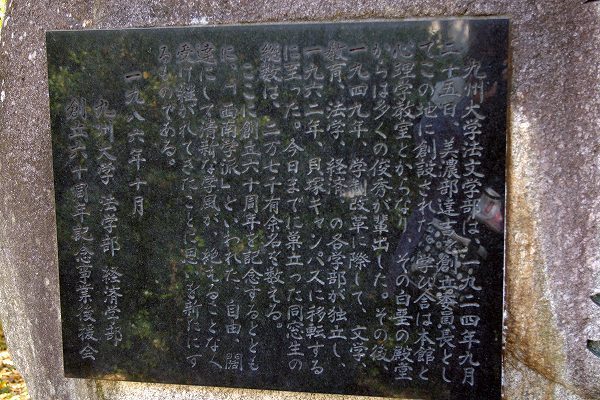 九州大学法文学部は、一九二四年九月
二十五日、美濃部達吉を創立委員長とし
てこの地に創設された。学び舎は本館と
心理学教室とからなり、その白堊の殿堂
からは多くの俊秀が輩出した。その後、
一九四九年、学制改革に際して、文学、
教育、法学、経済、の各学部が独立し、
一九六二年、貝塚キャンパスに移転する
に至った。今日までに巣立った同窓生の
総数は、二万七千有余名を数える。
ここに創立六十周年を記念するととも
に、「西南学派」といわれた、自由、闊
達にして清新な学風が、絶えることなく
受け継がれてきたことに思いを新たにす
るものである。
一九八六年十月
九州大学 法学部 経済学部
創立六十周年記念事業後援会